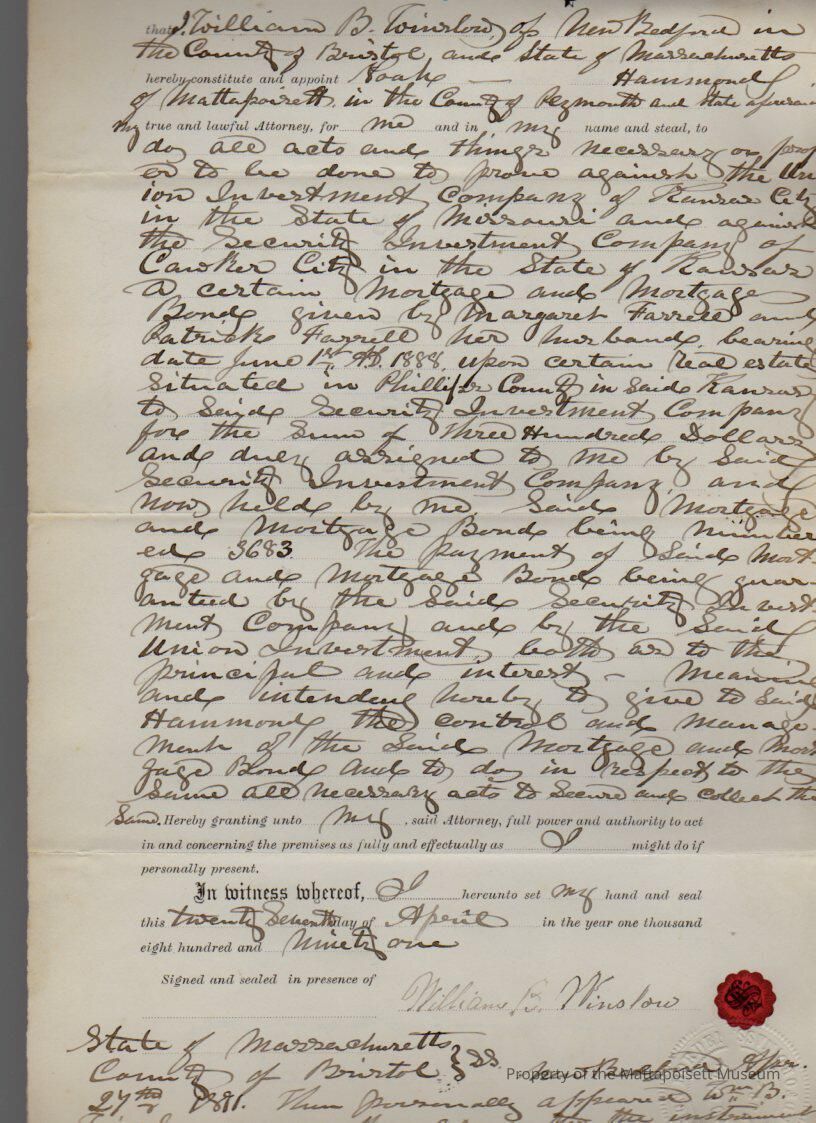 that I, William B. Winslow, of New Bedford in
the County of Bristol and State of Massachusetts
hereby constitute and appoint Noah — Hammond
of Mattapoisett in the County of Plymouth and State aforesaid
my true and lawful Attorney, for me and in my name and stead, to
do all acts and things necessary or prop
er to be done to prove against the Un
ion Investment Company of Kansas City
in the State of Missouri and against
the Security Investment Company of
Cawker City in the State of Kansas
a certain Mortgage and Mortgage
Bond given by Margaret Farrell and
Patrick Farrell her husband, bearing
date June 1st AD. 1888, upon certain real estate
situated in Phillips County in said Kansas
to said Security Investment Company
for the sum of Three Hundred Dollars
and duly assigned to me by said
Security Investment Company and
now held by me, said Mortgage
and Mortgage Bond being number
ed 3683. The payment of said Mort
gage and Mortgage Bond being guar
anteed by the said Security Invest
ment Company and by the said
Union Investment, both as to the
principal and interest - meaning
and intending hereby to give to said
Hammond the control and manage
ment of the said Mortgage and Mort
gage Bond and to do in respect to the
same all necessary acts to secure and collect the
same. Hereby granting unto my, said Attorney, full power and authority to act
in and concerning the premises as fully and effectually as I might do if
personally present.
In witness whereof, I hereunto set my hand and seal
this twenty seventh day of April in the year one thousand
eight hundred and ninety one
Signed and sealed in presence of
William B. Winslow
State of Massachusetts
County of Bristol } SS New Bedford
27th 1891. Then personally appeared Wm B.
the instrument
Property of the Mattapoisett Museum